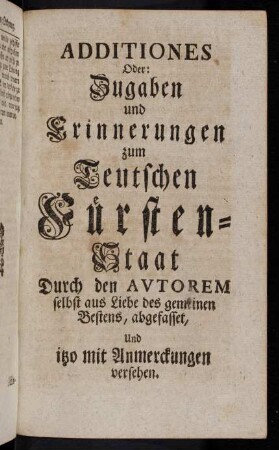 ADDITIONES
Oder:
Zugaben
und
Erinnerungen
zum
Teutschen
Fürsten-
Staat
Durch den AVTOREM
selbst aus Liebe des gemeinen
Bestens, abgefasset,
Und
itzo mit Anmerckungen
versehen.